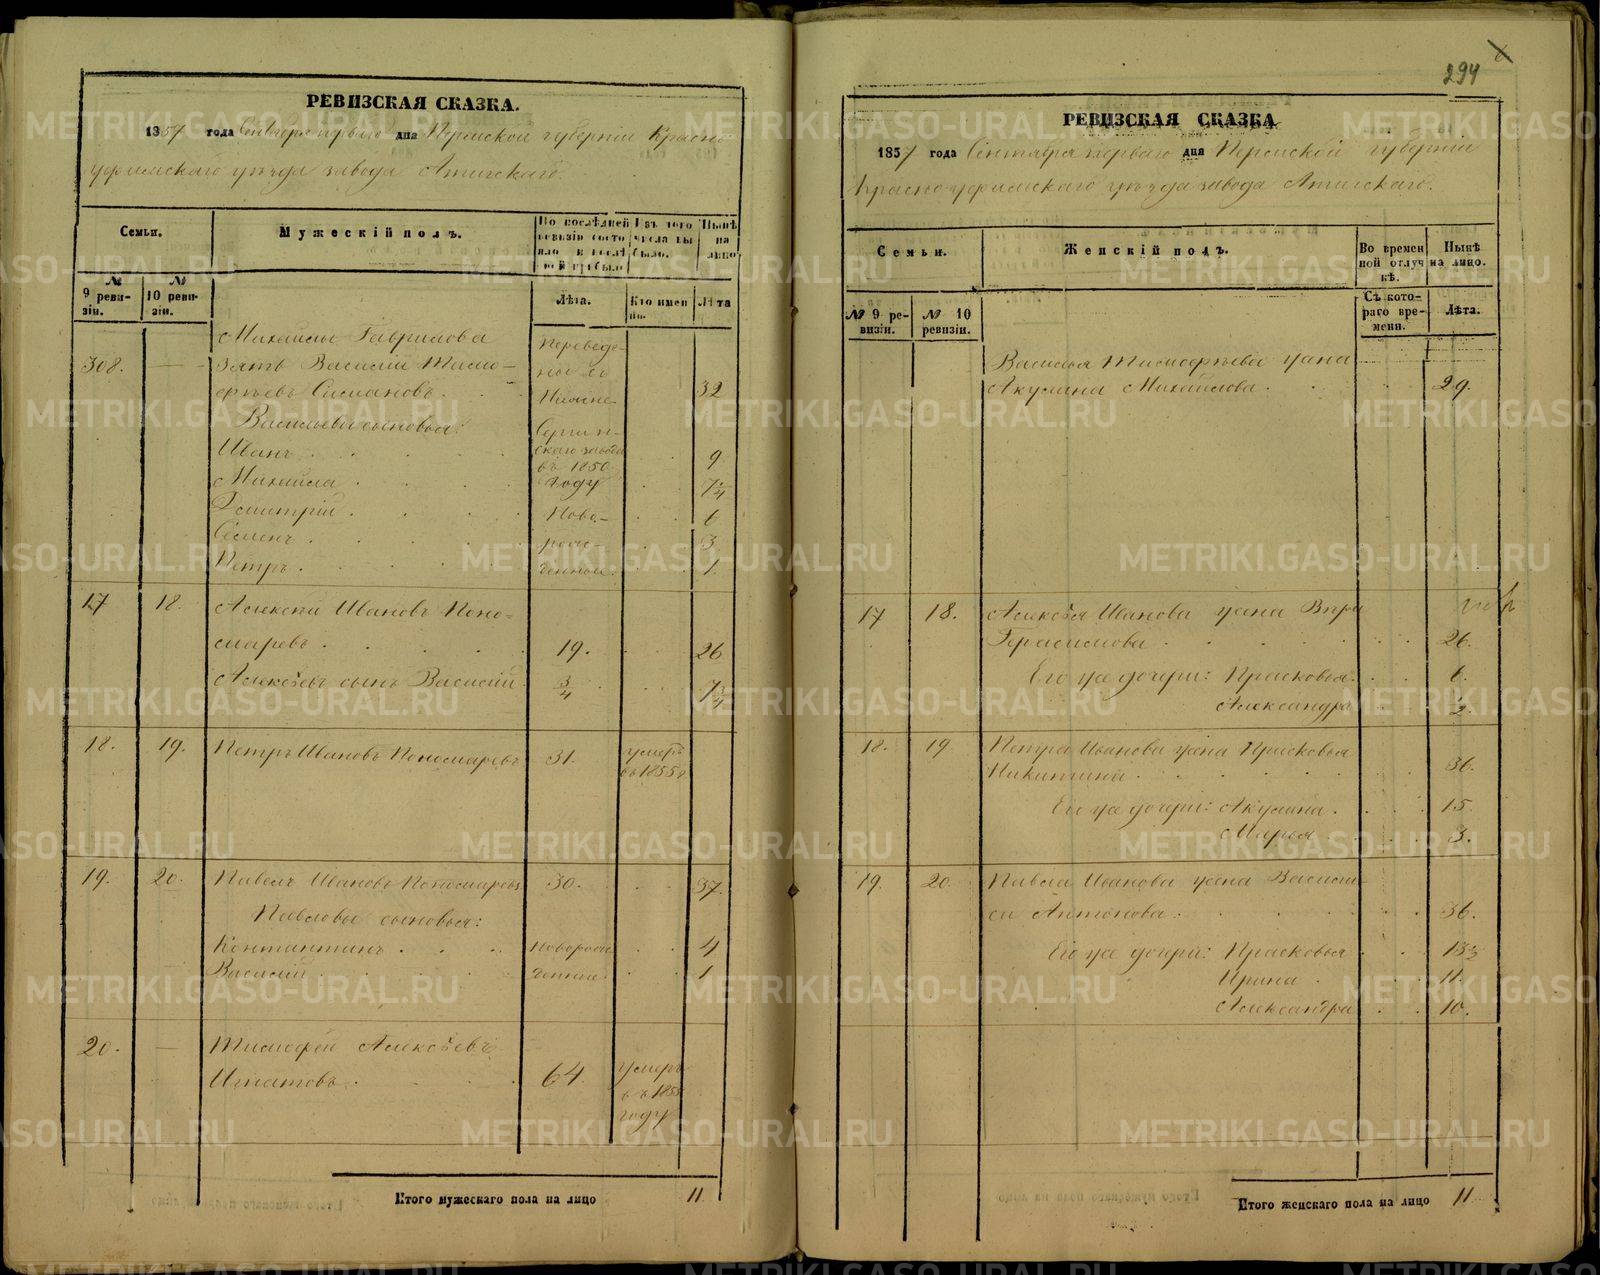 РЕВИЗСКАЯ СКАЗКА.
1857 года Сентября перваго дня Пермской губерніи Красно
уфимскаго уѣзда завода Атигскаго.
Семьи.
Мужескій полъ.
По послѣдней ревизіи состояло и послѣ той прибыло
Изъ того числа выбыло.
Нынѣ на лицо
№ 9 ревизіи.
№ 10 ревизіи.
Лѣта.
Кто именно.
Лѣта
Михайлы Гаврилова
308. — зять Василій Тимо-
фѣевъ Симановъ 32
Переведены съ Нижне Сергинскаго завода въ 1850 году
Васильевы сыновья:
Иванъ 9
Михайла 7 1/4
Дмитрій 6
Семенъ 3
Петръ 1
Новорожденные.
17 18. Алексѣй Ивановъ Поно-
маревъ 19. 26
Алексѣевъ сынъ Василій 3/4 7 3/4
18. 19. Петръ Ивановъ Пономаревъ 31. умеръ
въ 1855 г
19. 20. Павелъ Ивановъ Пономаревъ 30. 37.
Павловы сыновья:
Контантинъ новорож 4
Василій денные 1
20. — Тимофей Алексѣевъ
Игнатовъ 64. умеръ
въ 1855
году
Итого мужескаго пола на лицо 11.
294
РЕВИЗСКАЯ СКАЗКА
1857 года Сентября перваго дня Пермской губерніи
Красноуфимскаго уѣзда завода Атигскаго.
Семьи.
Женскій полъ.
Во временной отлучкѣ.
Нынѣ на лицо.
№ 9 ревизіи.
№ 10 ревизіи.
Съ котораго времени.
Лѣта.
Василья Тимофѣева жена
Акулина Михайлова 29.
17 18. Алексѣя Иванова жена Вѣра
Герасимова 26.
Его же дочери: Прасковья 6.
Александра 1/2.
18. 19 Петра Иванова жена Прасковья
Никитина 36.
Его же дочери: Акулина 15.
Марья 3.
19. 20. Павла Иванова жена Васили-
са Антонова 36.
Его же дочери: Прасковья 13
Ирина 11.
Александра 10.
Итого женскаго пола на лицо 11.
METRIKI.GASO-URAL.RU